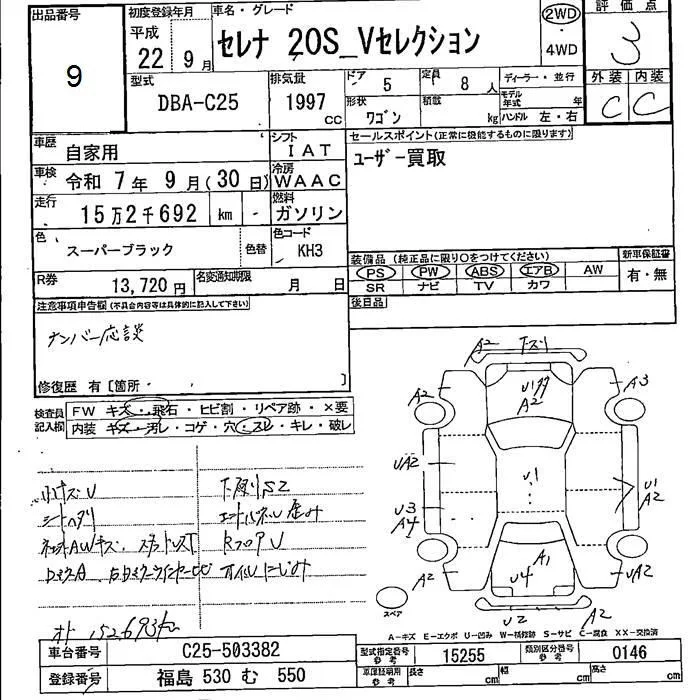 出品番号
9
初度登録年月
平成
22年 9月
車名・グレード
セレナ 20S_Vセレクション
2WD
・
4WD
評価点
3
外装 内装
C C
型式
DBA-C25
排気量
1997
CC
ドア
5
定員
8人
形状
ワゴン
積載
kg
ディーラー・並行
モデル年式 年
ハンドル 左・右
車歴
自家用
シフト
IAT
車検
令和 7年 9月(30日)
冷房
WAAC
走行
15万2千692 km
燃料
ガソリン
色
スーパーブラック
色替
カラーコード
KH3
R券
13,720円
名変通知期限
月 日
セールスポイント(正常に機能するものに限ります)
ユーザー買取
装備品 (純正品に限り○をつけてください)
PS PW ABS エアB AW
SR ナビ TV カワ
新車保証書
有・無
後日品
注意事項申告欄(不具合内容等は具体的に記入して下さい)
ナンバー応談
修復歴 有[箇所 ]
検査員記入欄
FW キズ・飛石・ヒビ割・リペア跡・×要
内装 キズ・汚レ・コゲ・穴・スレ・キレ・破レ
小キズU
シートヘタリ
下廻りS2
オイルにじみ
オド 152693km
A2
下スリ
A2
U1
A2
A3
UA2
U1
U1
A2
U3
A4
A2
A1
U4
UA2
U2
A2
スペア
A-キズ E-エクボ U-凹み W-補修跡 S-サビ C-腐食 XX-交換済
車台番号
C25-503382
型式指定番号
参考
15255
類別区分番号
参考
0146
登録番号
福島 530 む 550
車庫証明用
参考
長さ cm
幅 cm
高さ cm